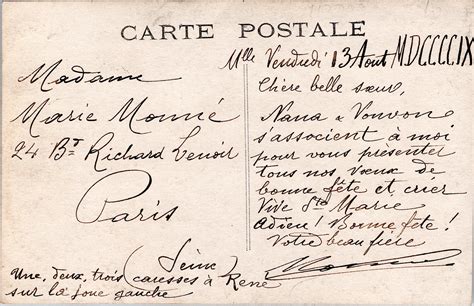 CARTE POSTALE
Mlle Vendredi 13 Aout MDCCCCIX
Madame
Marie Monné
24 Bd Richard Lenoir
Paris
(Seine)
Une, deux, trois caresses à René
sur la joue gauche
Chère belle sœur,
Nana & Vonvon
s'associent à moi
pour vous présenter
tous nos vœux de
bonne fête et crier
Vive Ste Marie
Adieu! Bonne fête!
Votre beau frère